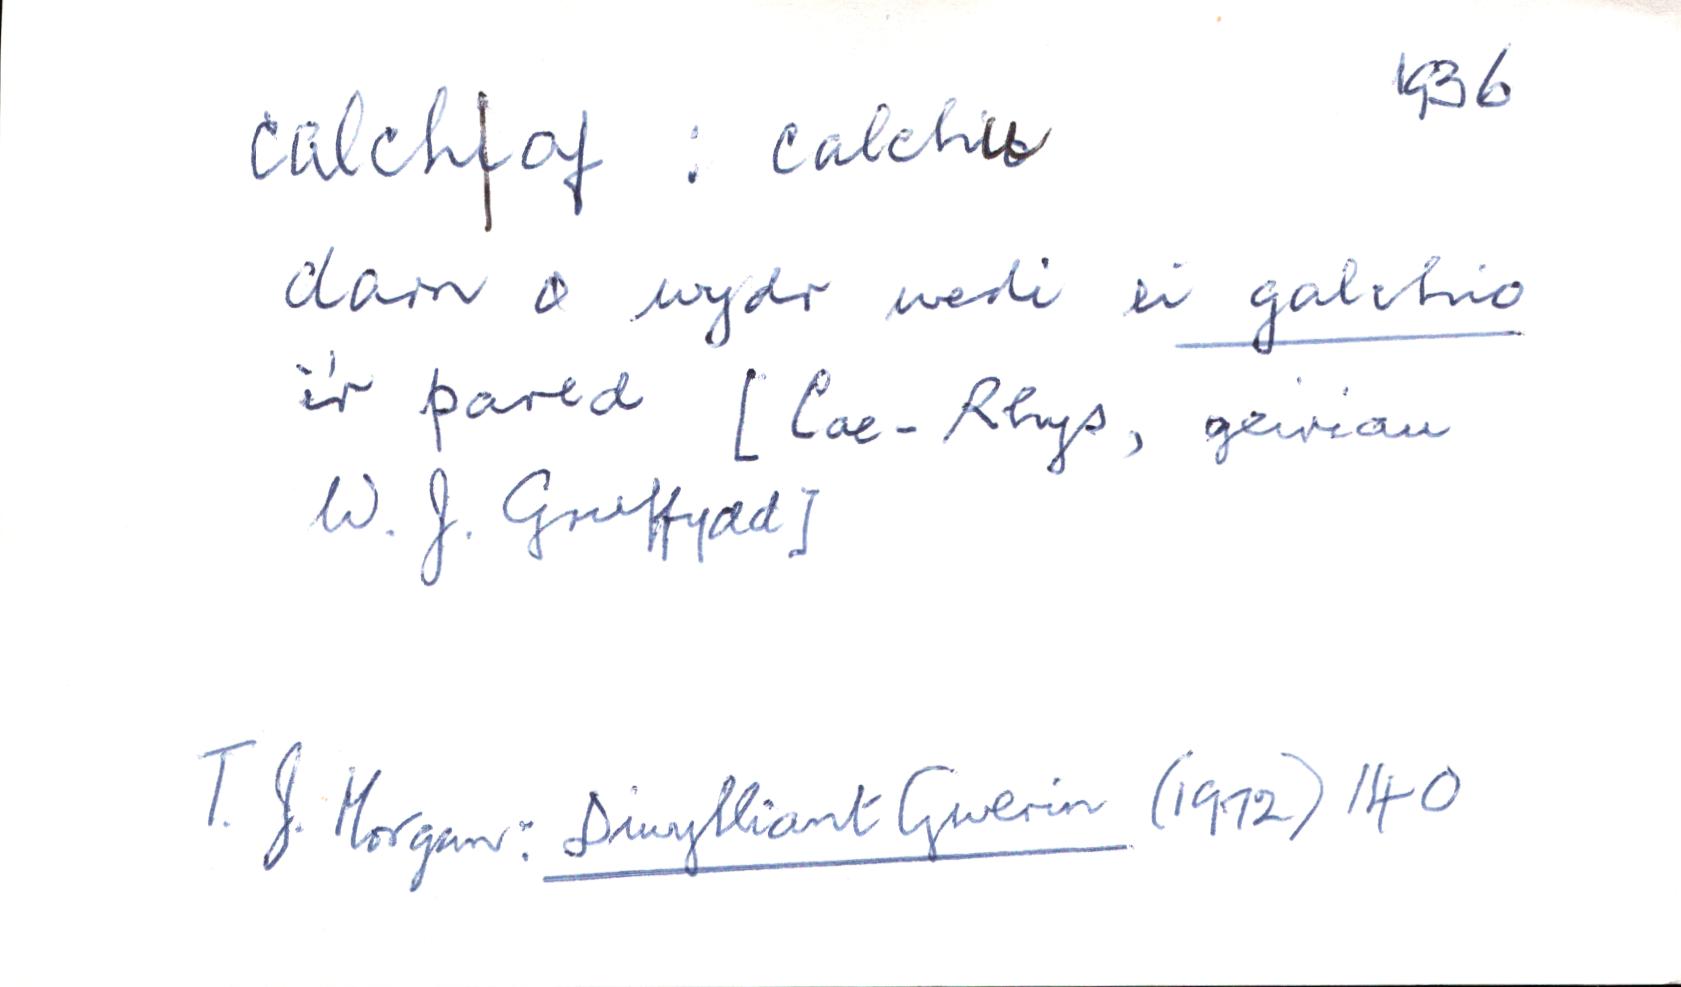 1936
calch|af : calchu
darn o wydr wedi ei galchio
i'r pared [Cae-Rhys, geiriau
W. J. Gruffydd]
T. J. Morgan: Diwylliant Gwerin (1972) 140